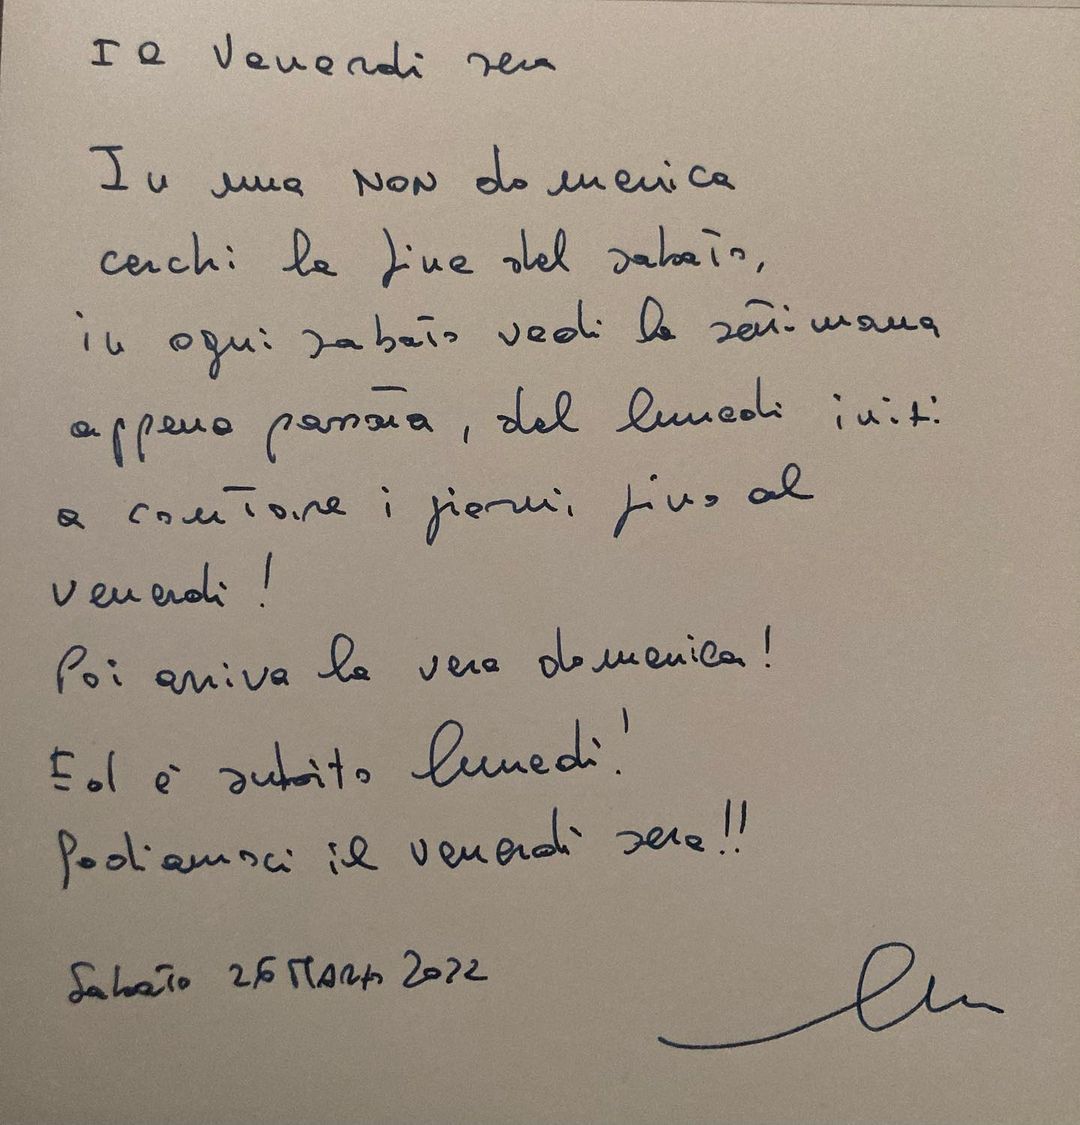 Il Venerdì sera
In una NON domenica
cerchi la fine del sabato,
in ogni sabato vedi la settimana
appena passata, dal lunedì initi
a contare i giorni fino al
venerdì!
Poi arriva la vera domenica!
Ed è subito lunedì!
Godiamoci il venerdì sera!!
Sabato 26 MARZO 2022